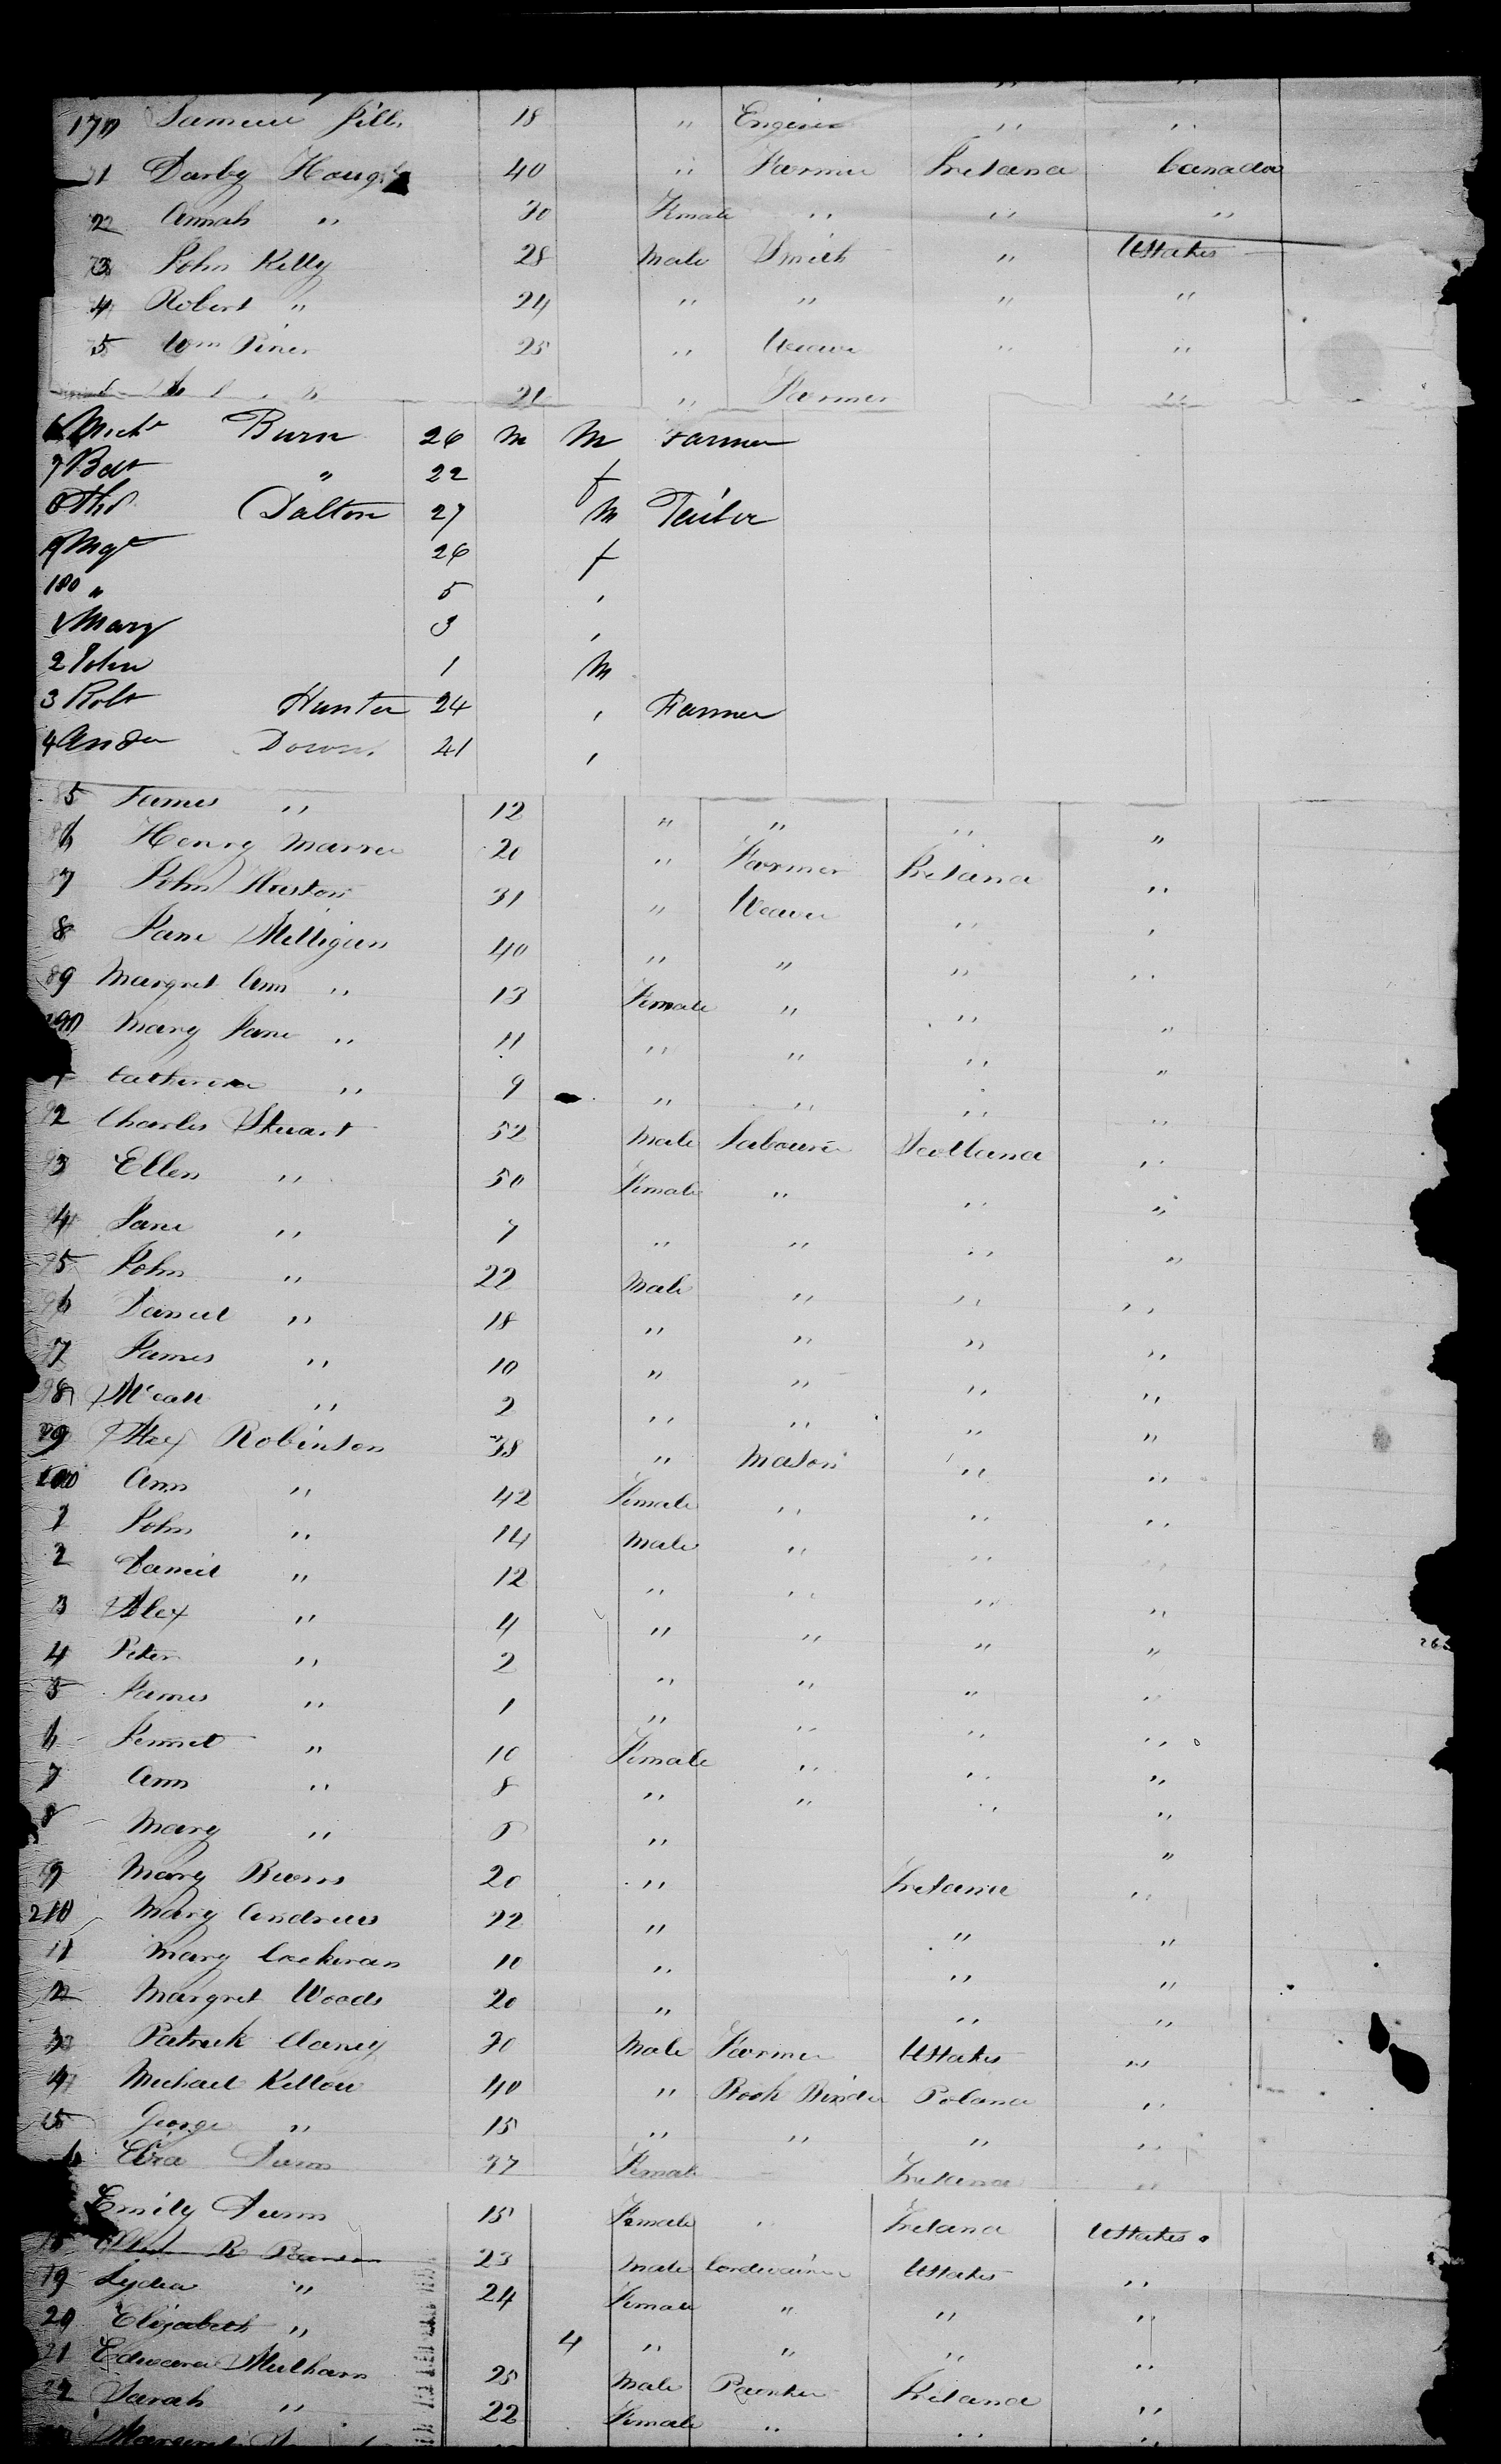 170 Samuel Gill 18 " Engineer " "
71 Darby 40 " Farmer Ireland Canada
72 Annah " 30 Female " " "
73 John Kelly 28 Male Smith " UStates
74 Robert " 24 " " " "
75 Wm Piner 25 " Weaver " "
21 " Farmer "
6 Michl Burn 26 M M Farmer
7 Bdt " 22 f
8 Ths Dalton 27 M Tailor
9 Mgt 26 f
180 " 5 "
1 Mary 3 "
2 John 1 M
3 Robt Hunter 24 " Farmer
4 Andw Down 21 "
85 James " 12 " " " "
86 Henry Marra 20 " Farmer Ireland "
87 John Huston 31 " Weaver " "
8 Jane Milligan 40 " " " "
89 Margret Ann " 13 Female " " "
190 Mary Jane " 11 " " " "
Catherine " 9 " " " "
92 Charles Stuart 52 Male Labourer Scotland "
93 Ellen " 50 Female " " "
94 Jane " 7 " " " "
95 John " 22 Male " " "
96 Daniel " 18 " " " "
97 James " 10 " " " "
98 " 2 " " " "
99 Alex Robinson 38 " Mason " "
200 Ann " 42 Female " " "
1 John " 14 Male " "
2 Daniel " 12 " " " "
3 Alex " 4 " " " "
4 Peter " 2 " " " "
5 James " 1 " " " "
6 Jennet " 10 Female " " "
7 Ann " 8 " " " "
8 Mary " 5 " "
9 Mary Burns 20 " Ireland "
210 Mary Andrews 22 " " "
11 Mary Cockeran 10 " " "
12 Margret Woods 20 " " "
13 Patrick Clancy 30 Male Farmer UStates "
14 Michael Kellow 40 " Book Binder Poland "
15 George " 15 " " " "
6 Eliza Dunn 37 Female Ireland "
Emily Dunn 15 Female " Ireland UStates
18 R 23 Male Cordwainer UStates "
19 Lydia " 24 Female " " "
20 Elizabeth " 4 " " " "
21 Edward Mulharn 25 Male Painter Ireland "
22 Sarah " 22 Female " " "
Margaret